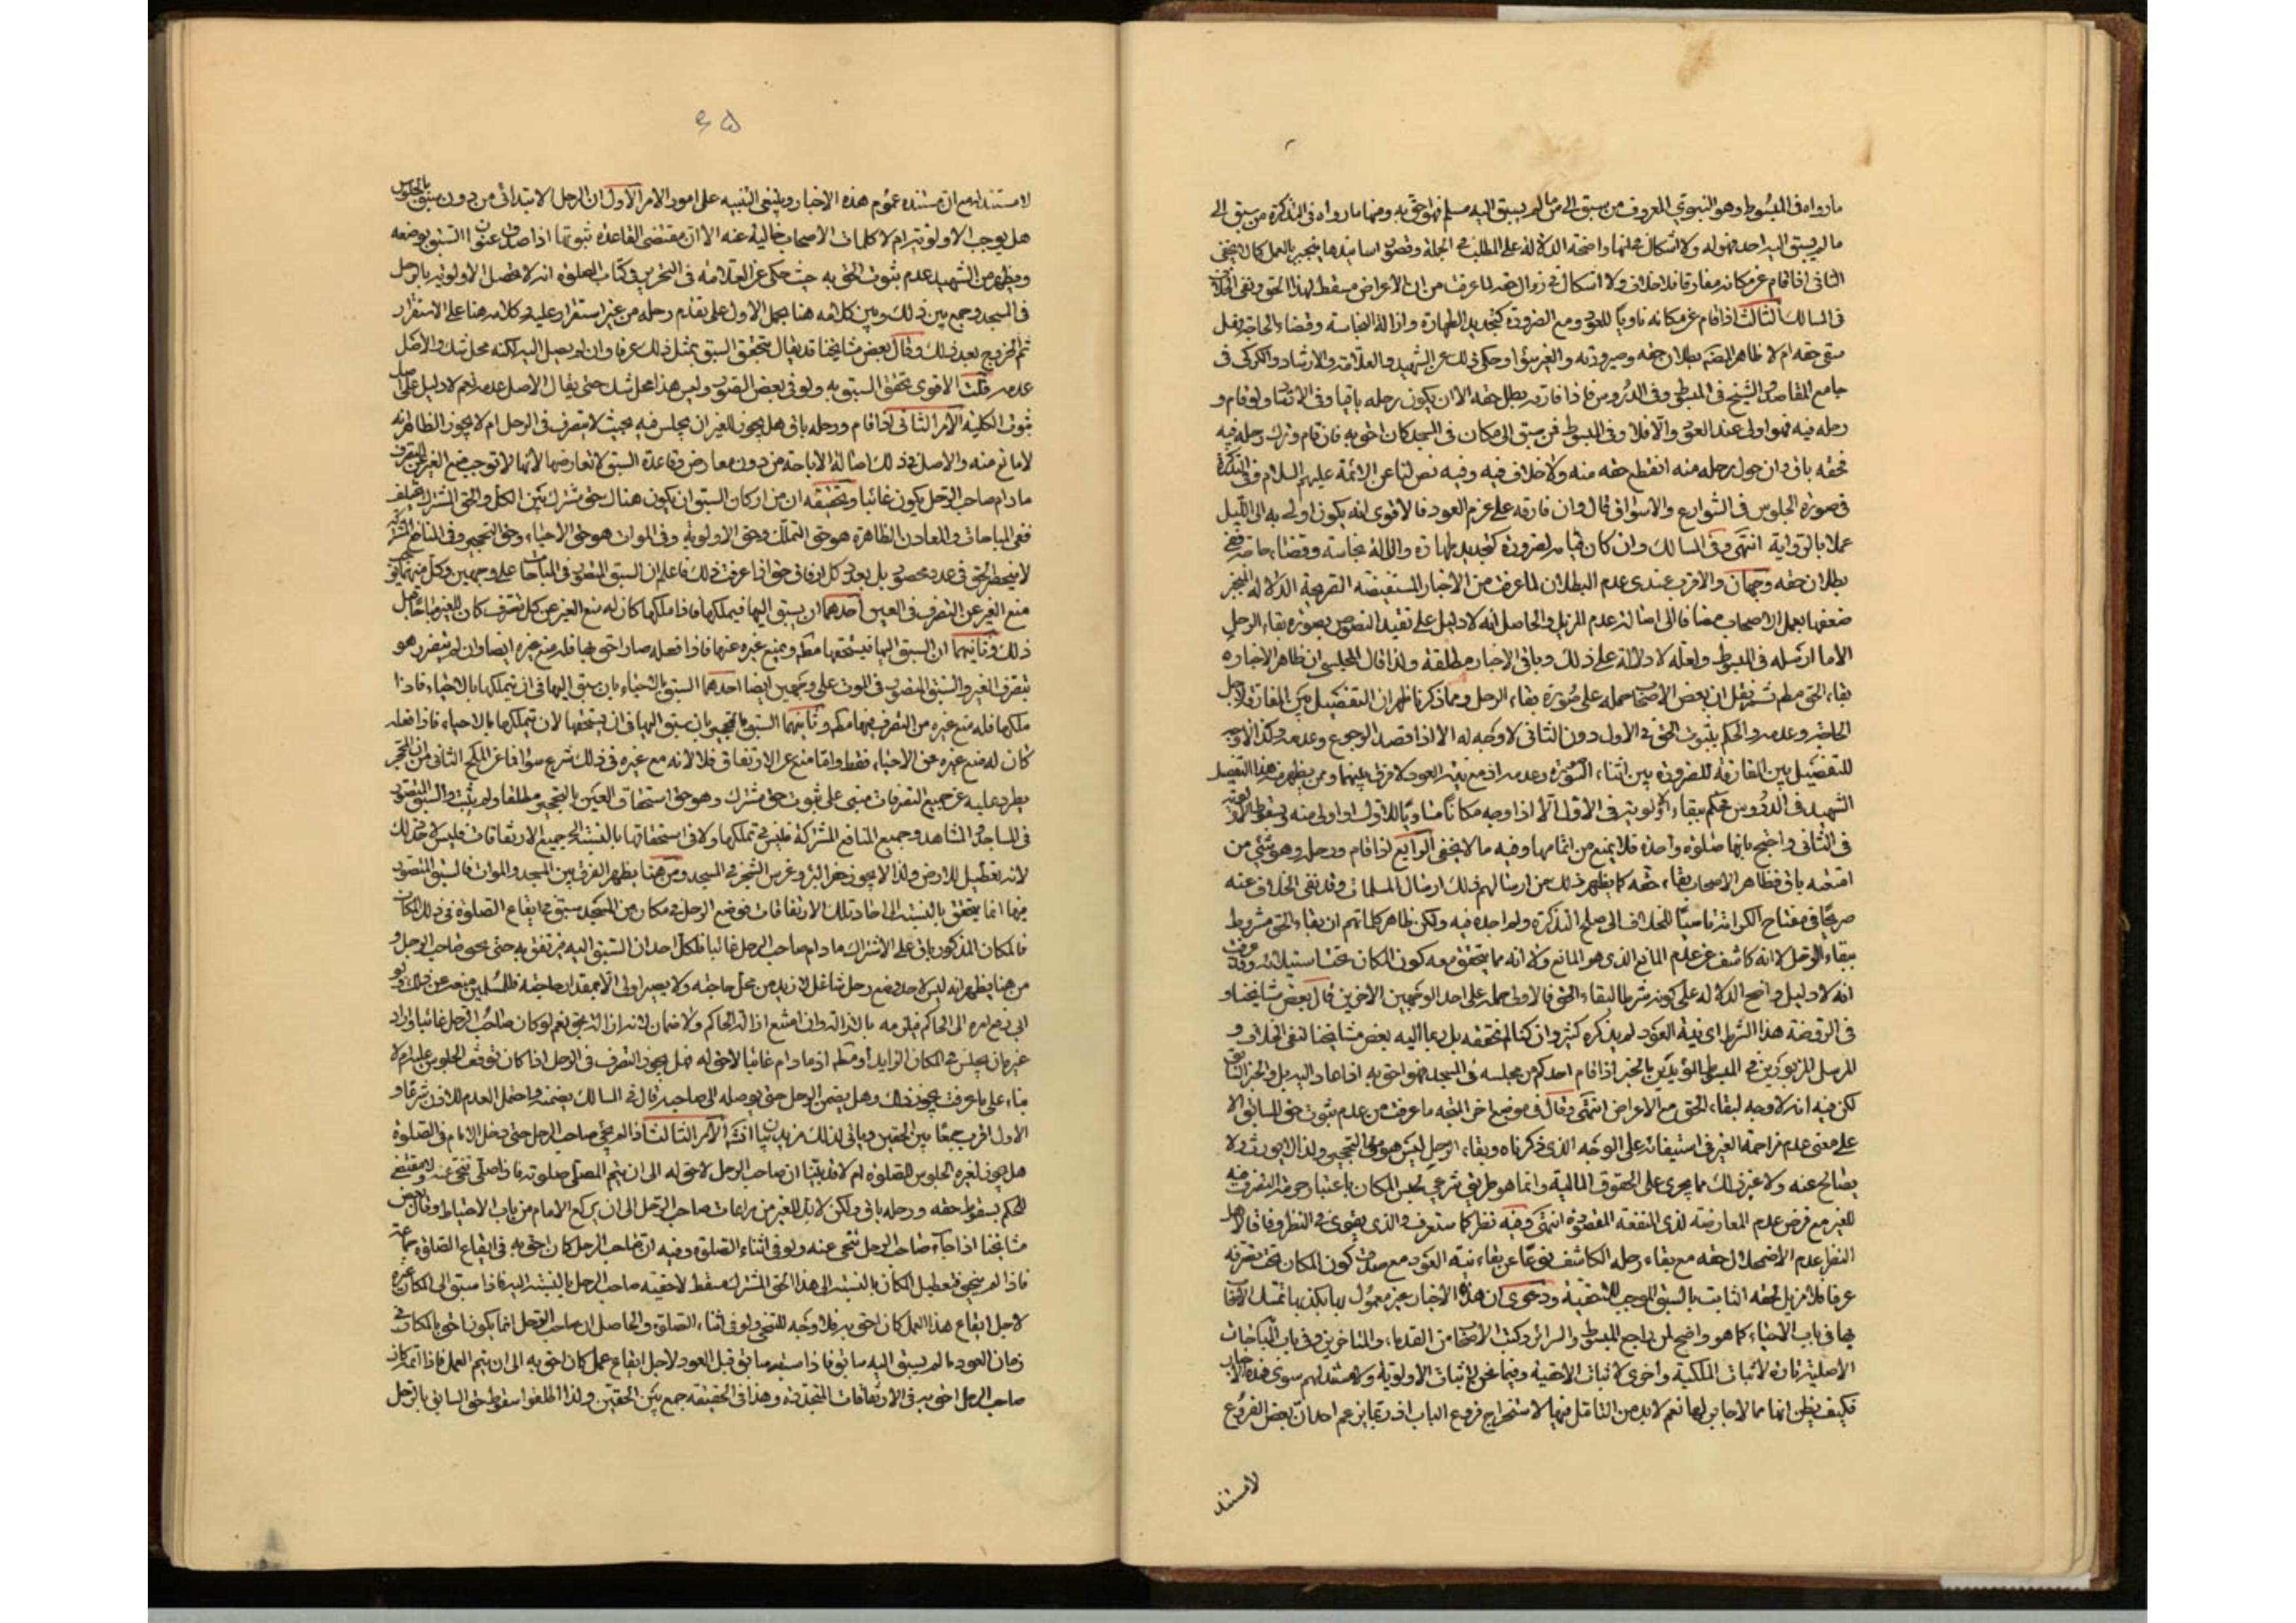 ما رواه فى المبسوط وهو النبوي المعروف من سبق الى ما لم يسبق اليه مسلم فهو احق به ومنها ما رواه فى التذكرة من سبق الى
ما لم يسبق اليه احد فهو له ولا اشكال فى انها واضحة الدلالة على المطلب فى الجملة وقصور اسانيدها ينجبر بالعمل كما لا يخفى
الثانى اذا قام عن مكانه مفارقا فلا خلاف ولا اشكال فى زوال حقه لما عرفت من ان الاعراض مسقط لهذا الحق ونفى الخلاف
فى المسالك الثالث اذا قام عن مكانه ناويا للعود ومع الضرورة كتجديد الطهارة وازالة النجاسة وقضاء الحاجة فهل
يبقى حقه ام لا ظاهر بطلان حقه وصيرورته والغير سواء وحكى ذلك عن الشهيد والعلامة والارشاد والكركى فى
جامع المقاصد والشيخ فى المبسوط وفى الدروس فاذا فارقه بطل حقه الا ان يكون رحله باقيا وفى ولو قام و
رحله فيه فهو اولى عند العود والا فلا وفى المبسوط فمن سبق الى مكان فى المسجد كان احق به فان قام وترك رحله فيه
فحقه باق وان حول رحله منه انقطع حقه منه ولا خلاف فيه وفيه نص لنا عن الائمة عليهم السلام وفى التذكرة
فى صورة الجلوس فى الشوارع والاسواق قال وان فارقه على عزم العود فالاقوى انه يكون اولى به الى الليل
عملا بالرواية انتهى وفى المسالك وان كان قيامه لضرورة كتجديد طهارة وازالة نجاسة وقضاء حاجة ففى
بطلان حقه وجهان والاقرب عندى عدم البطلان لما عرفت من الاخبار المستفيضة الصريحة الدلالة المنجبر
ضعفها بعمل الاصحاب مضافا الى اصالة عدم المزيل والحاصل انه لا دليل على تقييد النصوص بصورة بقاء الرحل
الا ما ارسله فى المبسوط ولعله لا دلالة على ذلك وباقى الاخبار مطلقة ولذا قال المجلسى ان ظاهر الاخبار
بقاء الحق مطم ثم نقل ان بعض الاصحاب حمله على صورة بقاء الرحل ومما ذكرنا ظهر ان التفصيل بين المفارقة لاجل
الحاجة وعدمه والحكم بثبوت الحق فى الاول دون الثانى لا وجه له الا اذا قصد الرجوع وعدمه وكذا لا وجه
للتفصيل بين المفارقة للضرورة بين اثناء الصلوة وعدمه اذ مع نية العود لا فرق بينهما وممن يظهر منه هذا التفصيل
الشهيد فى الدروس فحكم ببقاء الاولوية فى الاول الا اذا وجد مكانا مساويا للاول او اولى منه وبسقوط الاولوية
فى الثانى واحتج بانها صلوة واحدة فلا يمنع من اتمامها وفيه ما لا يخفى الرابع اذا قام ورحله وهو شئ من
امتعته باق فظاهر الاصحاب بقاء حقه كما يظهر ذلك من ارسالهم ذلك ارسال المسلمات وقد نفى الخلاف عنه
صريحا فى مفتاح الكرامة ناسبا للخلاف الى التذكرة ولم اجده فيه ولكن ظاهر كلماتهم ان بقاء الحق مشروط
ببقاء الرحل لا انه كاشف عن عدم المانع الذى هو المانع ولا انه مما يتحقق معه كون المكان تحت استيلائه وقد عرفت
انه لا دليل واضح الدلالة على كونه شرطا لبقاء الحق فالاولى حمله على احد الوجهين الاخرين قال بعض مشايخنا و
فى الروضة هذا الشرط اى نية العود لم يذكره كثير وان كنا لم نتحققه بل دعا اليه بعض مشايخنا لنفى الخلاف و
المرسل المزبورين فى المبسوط المؤيدين بالخبر اذا قام احدكم من مجلسه فى المسجد فهو احق به اذا عاد اليه بل والخبر السابق
لكن فيه انه لا وجه لبقاء الحق مع الاعراض انتهى وقال فى موضع اخر المتجه ما عرفت من عدم ثبوت حق للسابق الا
على معنى عدم مزاحمة الغير فى استيفائه على الوجه الذى ذكرناه وبقاء الرحل ليس هو التحجير ولذا لا يورث ولا
يصالح عنه ولا غير ذلك مما يجرى على الحقوق المالية وانما هو طريق شرعى لحبس المكان باعتبار حرمة التصرف فيه
للغير مع فرض عدم المعارضة لذى المنفعة المقصودة انتهى وفيه نظر كما ستعرف والذى يقوى فى النظر وفاقا لاهل
النظر عدم الاضمحلال لحقه مع بقاء رحله الكاشف نوعا عن بقاء نية العود مع صدق كون المكان تحت تصرفه
عرفا فلا مزيل لحقه الثابت بالسبق الموجب للاحقية ودعوى ان هذه الاخبار غير معمول بها يكذبها تمسك الاصحاب
بها فى باب الاحياء كما هو واضح لمن راجع المبسوط والسرائر وكتب الاصحاب من القدماء والمتاخرين وفى باب المباحات
الاصلية تارة لاثبات الملكية واخرى لاثبات الاحقية وفيما نحن فيه لاثبات الاولوية ولا مستند لهم سوى هذه الاخبار
فكيف يظن انها مما لا جابر لها نعم لا بد من التامل فيها لاستخراج فروع الباب اذ ربما يزعم احد ان بعض الفروع
لا مستند
٤٥
لا مستند له مع ان مستنده عموم هذه الاخبار وينبغى التنبيه على امور الامر الاول ان الرحل الابتدائى من دون سبق بالجلوس
هل يوجب الاولوية ام لا كلمات الاصحاب خالية عنه الا ان مقتضى القاعدة ثبوتها اذا صدق عنوان السبق بوضعه
ويظهر من الشهيد عدم ثبوت الحق به حيث حكى عن العلامة فى التحرير فى كتاب الصلوة انه لا تحصل الاولوية بالرحل
فى المسجد وجمع بين ذلك وبين كلامه هنا بحمل الاول على تقدم رحله من غير استقرار عليه وكلامه هنا على الاستقرار
ثم الخروج بعد ذلك وقال بعض مشايخنا قد يقال بتحقق السبق بمثل ذلك عرفا وان لم يصل اليه لكنه محل شك والاصل
عدمه قلت الاقوى تحقق السبق به ولو فى بعض الصور وليس هذا محل شك حتى يقال الاصل عدمه نعم لا دليل على
ثبوت الكلية الامر الثانى اذا قام ورحله باق هل يجوز للغير ان يجلس فيه بحيث لا يتصرف فى الرحل ام لا يجوز الظاهر انه
لا مانع منه والاصل فى ذلك اصالة الاباحة من دون معارض وقاعدة السبق لا تعارضها لانها لا توجب منع الغير عن التصرف
ما دام صاحب الرحل يكون غائبا وتحقيقه ان من اركان السبق ان يكون هناك حق مشترك بين الكل والحق المشترك مختلف
ففى المباحات والمعادن الظاهرة هو حق التملك وحق الاولوية وفى الموات هو حق الاحياء وحق التحجير وفى المنافع المشتركة
لا ينحصر الحق فى عدد محصور بل بعدد كل ارفاق حق اذا عرفت ذلك فاعلم ان السبق المتصور فى المباحات على وجهين وكل منهما
منع الغير عن التصرف فى العين احدهما ان يسبق اليها فيملكها فاذا ملكها كان له منع الغير عن كل تصرف كان للغير مباحا قبل
ذلك وثانيهما ان السبق اليها فيستحقها مطم ويمنع غيره عنها فاذا فعله صار احق بها فله منع غيره ايضا وان لم يتضرر هو
بتصرف الغير والسبق المتصور فى الموت على وجهين ايضا احدهما السبق بالاحياء بان سبق اليها فى ان يتملكها بالاحياء فاذا
ملكها فله منع غيره من التصرف فيها مطم وثانيهما السبق بالتحجير بان سبق اليها فى ان يستحقها لان يتملكها بالاحياء فاذا فعله
كان له منع غيره عن الاحياء فقط واما منع عن الارتفاق فلا لانه مع غيره فى ذلك شرع سواء
يطرد عليه عن جميع التصرفات مبنى على ثبوت حق مشترك وهو حق استحقاق العين بالتحجير مطلقا ولم يثبت والسبق المتصور
فى المساجد والمشاهد وجميع المنافع المشتركة فليس فى تملكها ولا فى استحقاقها بالنسبة الى جميع الارتفاقات فليس لاحد ذلك
لانه تعطيل للارض ولذا لا يجوز حفر البئر وغرس الشجر فى المسجد ومن هنا يظهر الفرق بين المسجد والموات فالسبق المتصور
فيها انما يتحقق بالنسبة الى احاد تلك الارتفاقات فوضع الرحل فى مكان من المسجد سبق فى ايقاع الصلوة فى ذلك المكان
فالمكان المذكور باق على الاشتراك ما دام صاحب الرحل غائبا فلكل احد ان السبق اليه فيرتفق به حتى يجئ صاحب الرحل و
من هنا يظهر انه ليس لاحد وضع رحل شاغل لازيد من محل حاجته ولا يصير اولى الا بمقدار حاجته فللمسلمين منعه عن ذلك ولو
ابى رفع امره الى الحاكم فيلزمه بازالته وان امتنع ازاله الحاكم ولا ضمان لانه ازالة بحق نعم لو كان صاحب الرحل غائبا واراد
غيره ان يجلس فى المكان الزايد او مطم اذ ما دام غائبا لا حق له فهل يجوز التصرف فى الرحل اذا كان توقف الجلوس عليه ام لا
بناء على ما عرفت يجوز ذلك وهل يضمن الرحل حتى يوصله الى صاحبه قال فى المسالك يضمنه واحتمل العدم للاذن شرعا و
الاول اقرب جمعا بين الحقين وياتى لذلك مزيد بيان انشا الامر الثالث اذا لم يجئ صاحب الرحل حتى دخل الامام فى الصلوة
هل يجوز لغيره الجلوس للصلوة ام لا قد بينا ان صاحب الرحل لا حق له الى ان يتم المصلى صلوته فاذا صلى تنحى عنه ولا مقتضى
للحكم بسقوط حقه ورحله باق ولكن لا بد للغير من مراعات صاحب الرحل الى ان يركع الامام من باب الاحتياط وقال بعض
مشايخنا اذا جاء صاحب الرحل تنحى عنه ولو فى اثناء الصلوة وفيه ان صاحب الرحل كان احق به فى ايقاع الصلوة جماعة
فاذا لم يجئ فتعطيل المكان بالنسبة الى هذا الحق المشترك مسقط لاحقية صاحب الرحل بالنسبة اليه فاذا سبق الى المكان غيره
لاجل ايقاع هذا العمل كان احق به فلا وجه للتنحى ولو فى اثناء الصلوة والحاصل ان صاحب الرحل انما يكون احق بالمكان فى
زمان العود ما لم يسبق اليه سابق فاذا سبقه سابق قبل العود لاجل ايقاع عمل كان احق به الى ان يتم العمل فاذا اتمه كان
صاحب الرحل احق به فى الارتفاقات المتجددة وهذا فى الحقيقة جمع بين الحقين ولذا اطلقوا سقوط حق السابق بالرحل